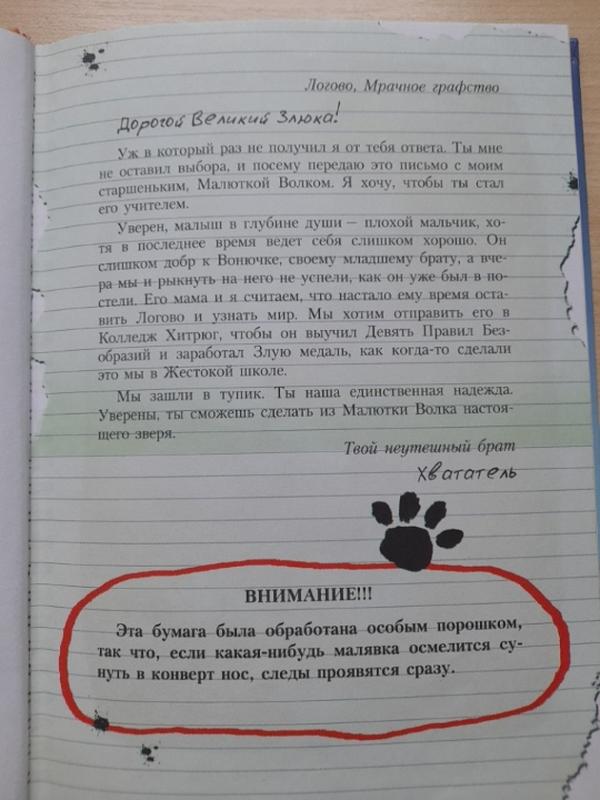 Логово, Мрачное графство
Дорогой Великий Злюка!
Уж в который раз не получил я от тебя ответа. Ты мне
не оставил выбора, и посему передаю это письмо с моим
старшеньким, Малюткой Волком. Я хочу, чтобы ты стал
его учителем.
Уверен, малыш в глубине души — плохой мальчик, хо-
тя в последнее время ведет себя слишком хорошо. Он
слишком добр к Вонючке, своему младшему брату, а вче-
ра мы и рыкнуть на него не успели, как он уже был в по-
стели. Его мама и я считаем, что настало ему время оста-
вить Логово и узнать мир. Мы хотим отправить его в
Колледж Хитрюг, чтобы он выучил Девять Правил Без-
образий и заработал Злую медаль, как когда-то сделали
это мы в Жестокой школе.
Мы зашли в тупик. Ты наша единственная надежда.
Уверены, ты сможешь сделать из Малютки Волка настоя-
щего зверя.
Твой неутешный брат
Хвататель
ВНИМАНИЕ!!!
Эта бумага была обработана особым порошком,
так что, если какая-нибудь малявка осмелится су-
нуть в конверт нос, следы проявятся сразу.